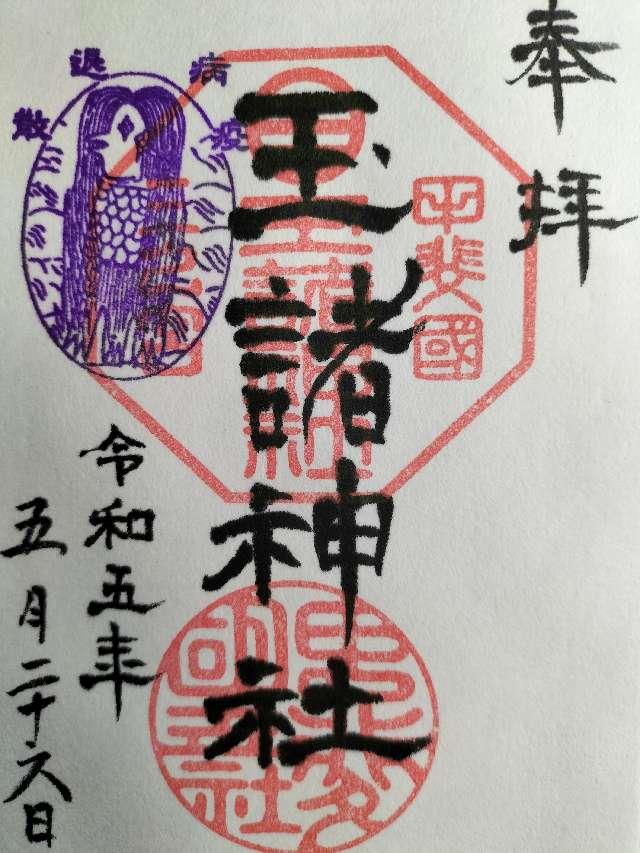 奉拝
玉諸神社
甲斐國
三宮
玉諸神社
病疫退散
令和五年
五月二十六日